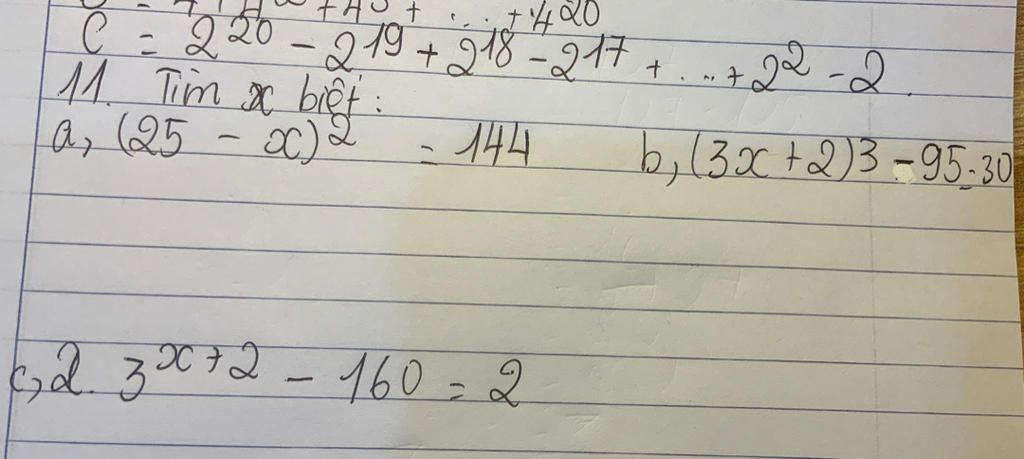 + ... + 4²⁰
C = 2²⁰ - 2¹⁹ + 2¹⁸ - 2¹⁷ + ... + 2² - 2.
11. Tìm x biết:
a, (25 - x)² = 144 b, (3x + 2)3 - 95 = 30
c, 2. 3ˣ⁺² - 160 = 2